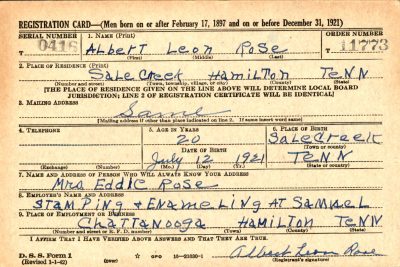 REGISTRATION CARD—(Men born on or after February 17, 1897 and on or before December 31, 1921)
SERIAL NUMBER 1. NAME (Print) ORDER NUMBER
T 0416 Albert Leon Rose 11773
(First) (Middle) (Last)
2. PLACE OF RESIDENCE (Print)
Sale Creek Hamilton Tenn
(Number and street) (Town, township, village, or city) (County) (State)
[THE PLACE OF RESIDENCE GIVEN ON THE LINE ABOVE WILL DETERMINE LOCAL BOARD
JURISDICTION; LINE 2 OF REGISTRATION CERTIFICATE WILL BE IDENTICAL]
3. MAILING ADDRESS
Same
[Mailing address if other than place indicated on line 2. If same insert word same]
4. TELEPHONE 5. AGE IN YEARS 6. PLACE OF BIRTH
20 Sale Creek
DATE OF BIRTH (Town or county)
July 12 1921 Tenn
(Exchange) (Number) (Mo.) (Day) (Yr.) (State or country)
7. NAME AND ADDRESS OF PERSON WHO WILL ALWAYS KNOW YOUR ADDRESS
Mrs Eddie Rose
8. EMPLOYER'S NAME AND ADDRESS
Stamping & Enameling At Sammel
9. PLACE OF EMPLOYMENT OR BUSINESS
Chattanooga Hamilton Tenn
(Number and street or R. F. D. number) (Town) (County) (State)
I AFFIRM THAT I HAVE VERIFIED ABOVE ANSWERS AND THAT THEY ARE TRUE.
D. S. S. Form 1 GPO 16—21630-1 Albert Leon Rose
(Revised 1-1-42) (Registrant's signature)